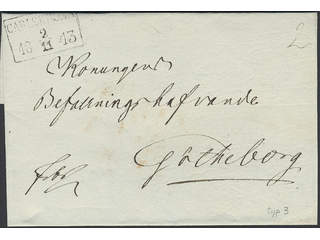 2
11
18 43
2
Konungens
Befallningshafvande
Götheborg
typ 3